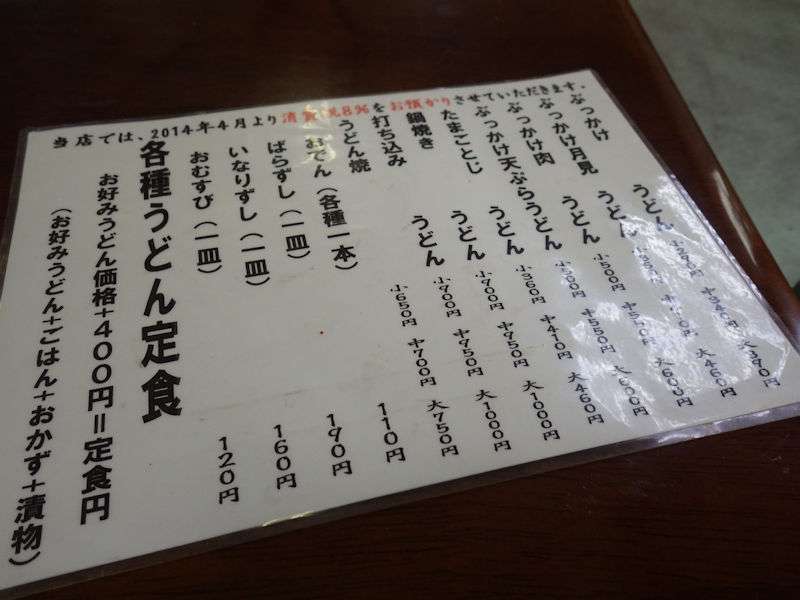 当店では、2014年4月より消費税8%をお預かりさせていただきます。
ぶっかけ うどん 小290円 中340円 大390円
ぶっかけ月見 うどん 小360円 大460円
ぶっかけ肉 うどん 小500円 中550円 大600円
ぶっかけ天ぷらうどん 小500円 中550円 大600円
たまごとじ うどん 小360円 中410円 大460円
鍋焼き うどん 小900円 中950円 大1000円
打ち込み うどん 小900円 中950円 大1000円
うどん焼 小650円 中700円 大750円
おでん(各種一本) 110円
ばらずし(一皿) 190円
いなりずし(一皿) 160円
おむすび(一皿) 120円
各種うどん定食
お好みうどん価格+400円=定食円
(お好みうどん+ごはん+おかず+漬物)